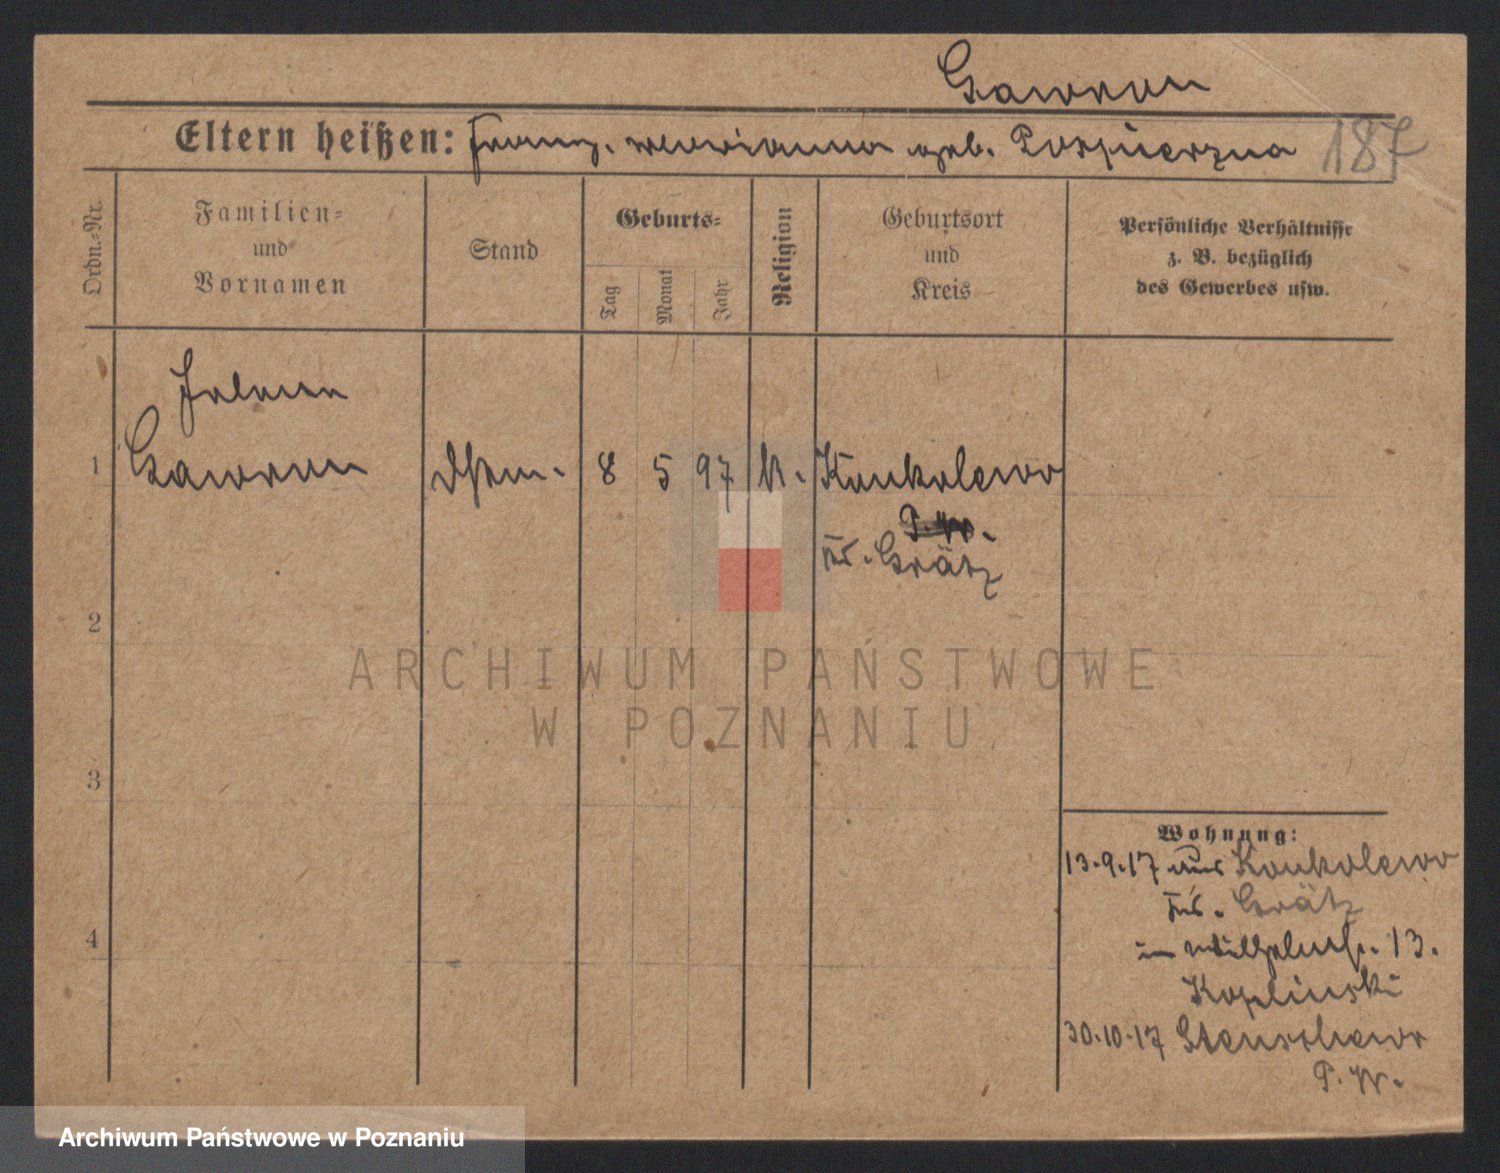 Gawron
Eltern heißen: Franz, Marianna geb. Pospieszna 187
Ordn.-Nr.
Familien-
und
Vornamen
Stand
Geburts-
Tag
Monat
Jahr
Religion
Geburtsort
und
Kreis
Persönliche Verhältnisse
z. B. bezüglich
des Gewerbes usw.
Helena
1 Gawron 8 5 97 K. Konkolewo
P. W.
Kr. Grätz
2
3
4
Wohnung:
13.9.17 aus Konkolewo
Kr. Grätz
in Wilhelmstr. 13.
Koplinski
30.10.17 Stenschewo
P. W.
ARCHIWUM PAŃSTWOWE
W POZNANIU
Archiwum Państwowe w Poznaniu